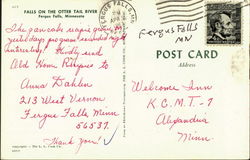 FALLS ON THE OTTER TAIL RIVER
Fergus Falls, Minnesota
The pancake recipe given on
yesterdays program sounded very
interesting! Kindly send
Old Home Recipes to
Anna Dahlen
213 West Vernon
Fergus Falls Minn.
56537.
Thank You!
FERGUS FALLS, MN
Fergus Falls
MN
POST CARD
Address
Welcome Inn
K.C.M.T. - 7
Alexandria
Minn.